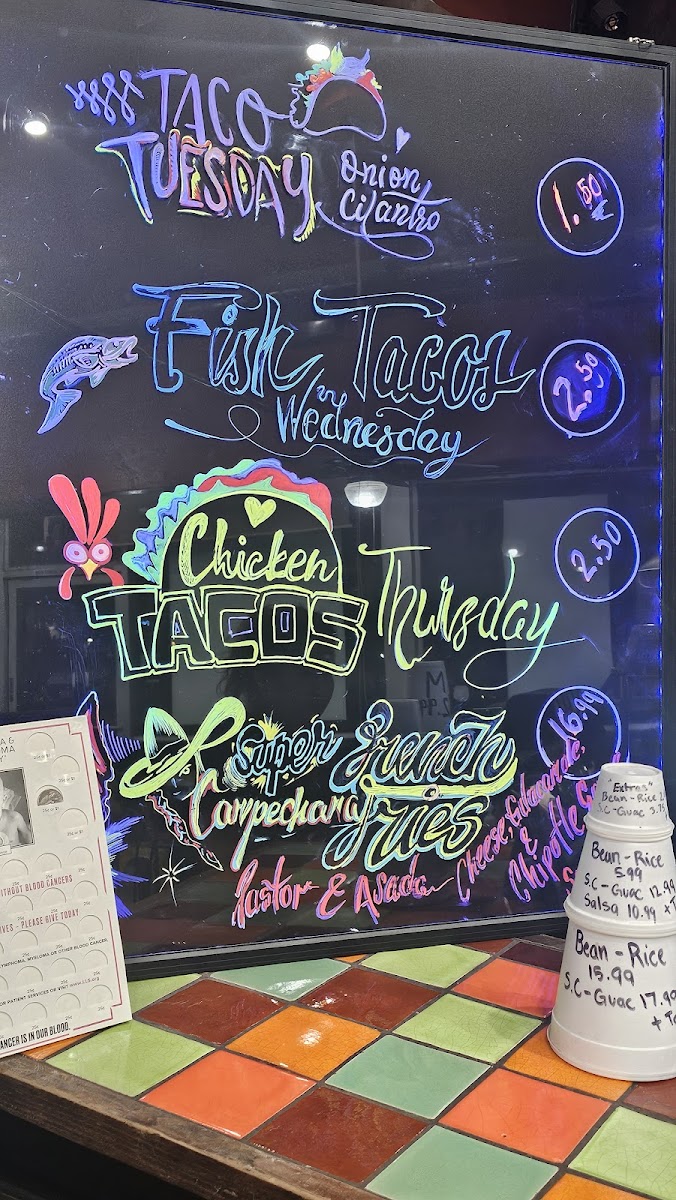 TACO
TUESDAY
Onion
Cilantro
1.50
Fish Tacos
in
Wednesday
2.50
Chicken
TACOS
Thursday
2.50
Super French
Campechana Fries
16.99
Pastor & Asada
Cheese, Guacamole,
&
Chipotle
"Extras"
Bean-Rice
S.C-Guac
Bean-Rice
5.99
S.C-Guac 12.99
Salsa 10.99
Bean-Rice
15.99
S.C-Guac 17.99
+
WITHOUT BLOOD CANCERS
- PLEASE GIVE TODAY
LYMPHOMA, MYELOMA OR OTHER BLOOD CANCER
FOR PATIENT SERVICES OR VISIT www.LLS.org
CANCER IS IN OUR BLOOD.